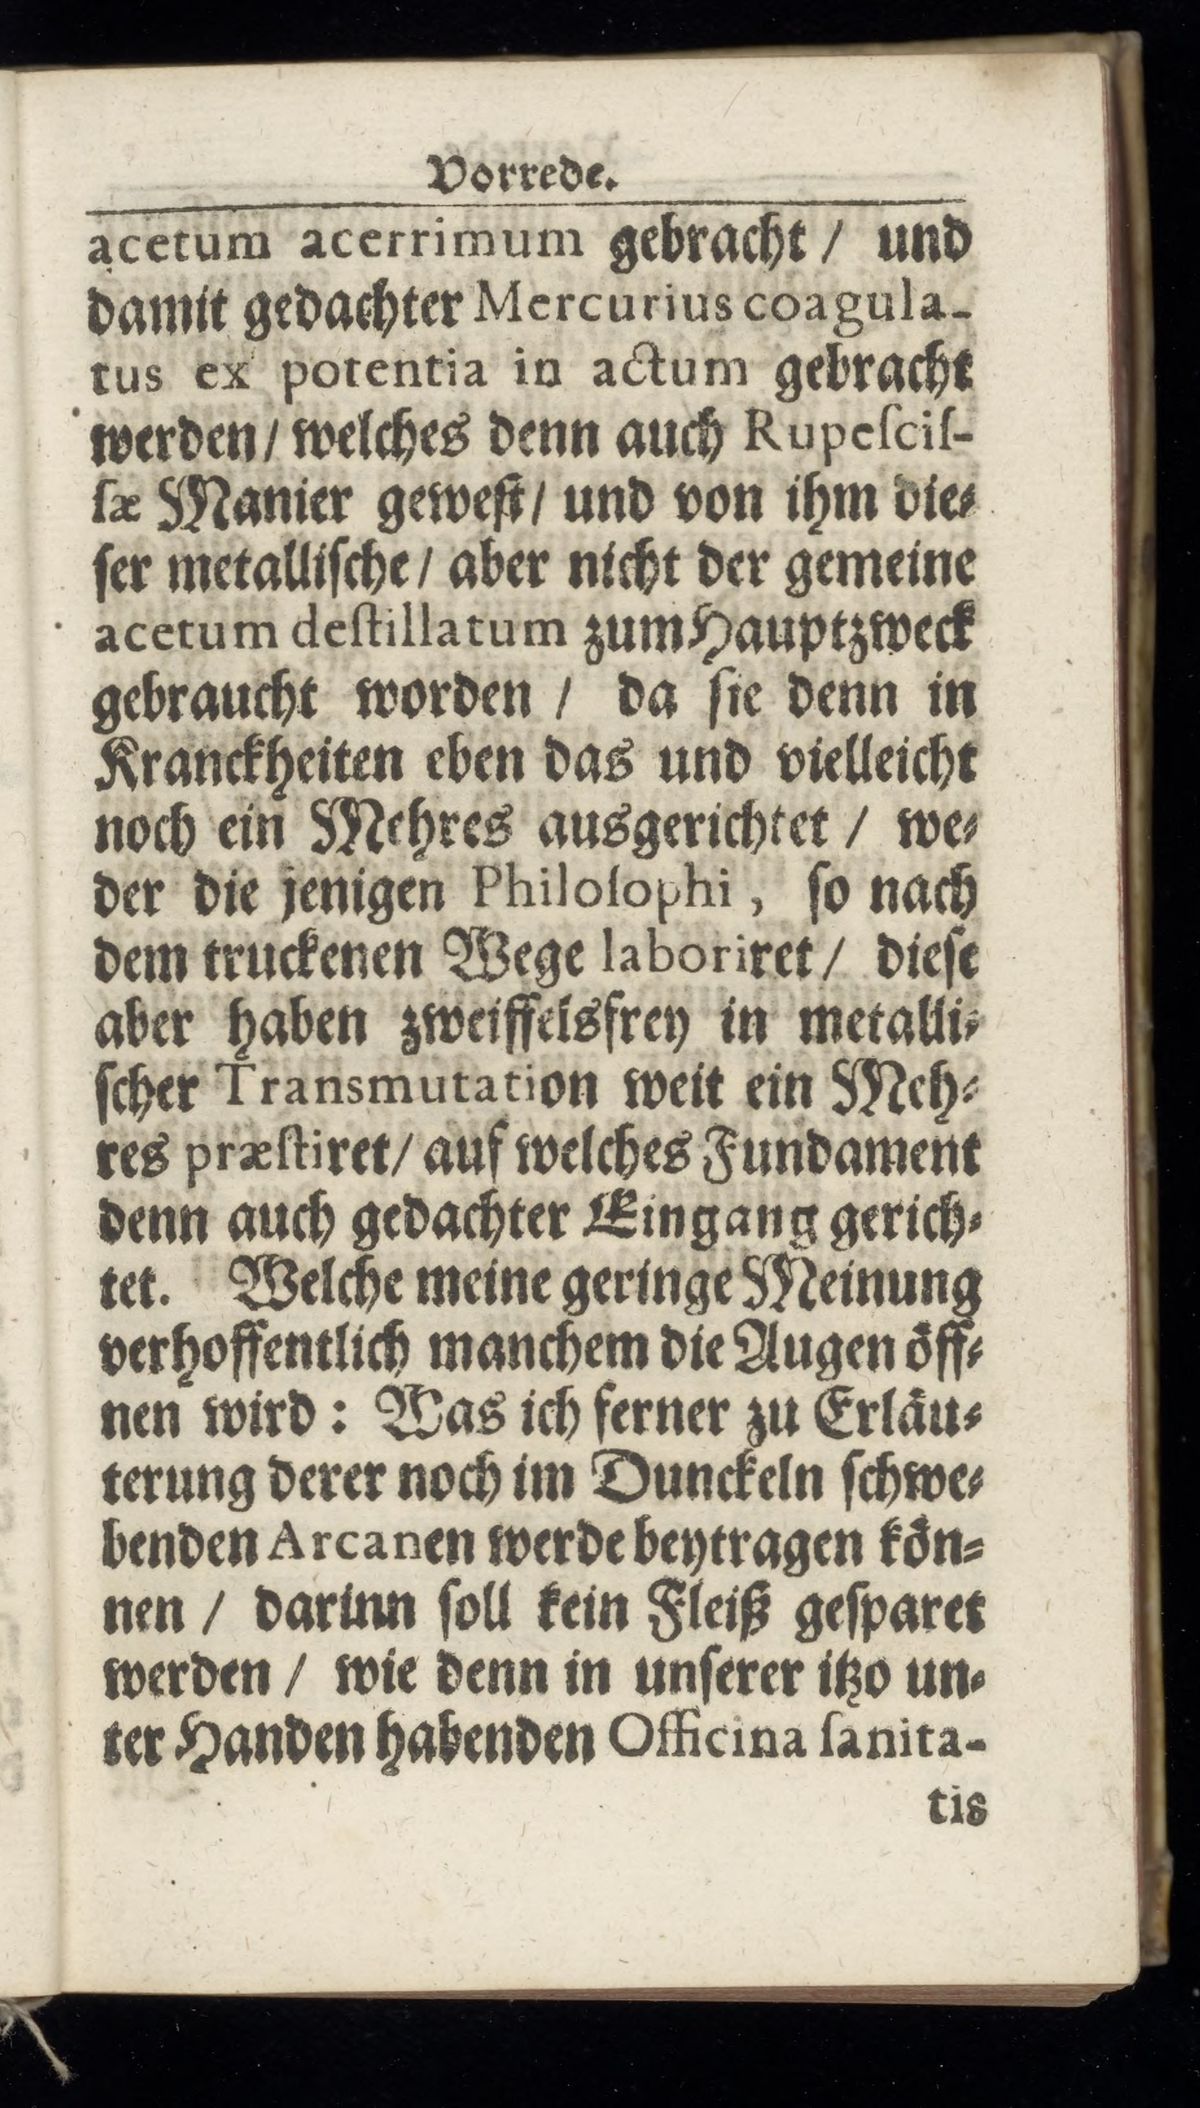 Vorrede.
acetum acerrimum gebracht / und
damit gedachter Mercurius coagula-
tus ex potentia in actum gebracht
werden / welches denn auch Rupeſciſ-
ſæ Manier geweſt / und von ihm die-
ſer metalliſche / aber nicht der gemeine
acetum deſtillatum zum Hauptzweck
gebraucht worden / da ſie denn in
Kranckheiten eben das und vielleicht
noch ein Mehres ausgerichtet / we-
der die jenigen Philoſophi, ſo nach
dem truckenen Wege laboriret / dieſe
aber haben zweiffelsfrey in metalli-
ſcher Transmutation weit ein Meh-
res præſtiret / auf welches Fundament
denn auch gedachter Eingang gerich-
tet. Welche meine geringe Meinung
verhoffentlich manchem die Augen öff-
nen wird : Was ich ferner zu Erläu-
terung derer noch im Dunckeln ſchwe-
benden Arcanen werde beytragen kön-
nen / darinn ſoll kein Fleiß geſparet
werden / wie denn in unſerer itzo un-
ter Handen habenden Officina ſanita-
tis